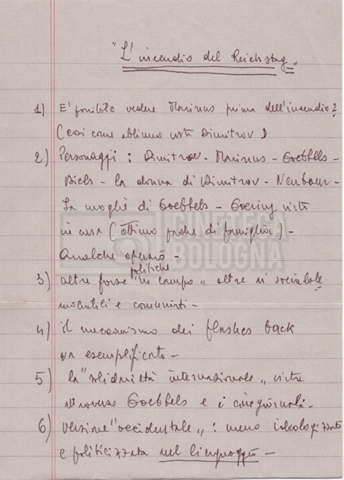 "L'incendio del Reichstag"
1) E' possibile vedere Marinus prima dell'incendio?
(così come abbiamo visto Dimitrov)
2) Personaggi: Dimitrov - Marinus - Goebbels -
Diels - la donna di Dimitrov - Neubauer -
La moglie di Goebbels - Goering visto
in casa (ottimo padre di famiglia) -
Qualche operaio -
3) altre forze politiche "in campo" oltre ai socialde
mocratici e comunisti -
4) il meccanismo dei flashes back
va esemplificato -
5) la "solidarietà internazionale" vista
attraverso Goebbels e i cinegiornali.
6) Versione "occidentale": meno ideologizzata
e politicizzata nel linguaggio -
CINETECA
BOLOGNA